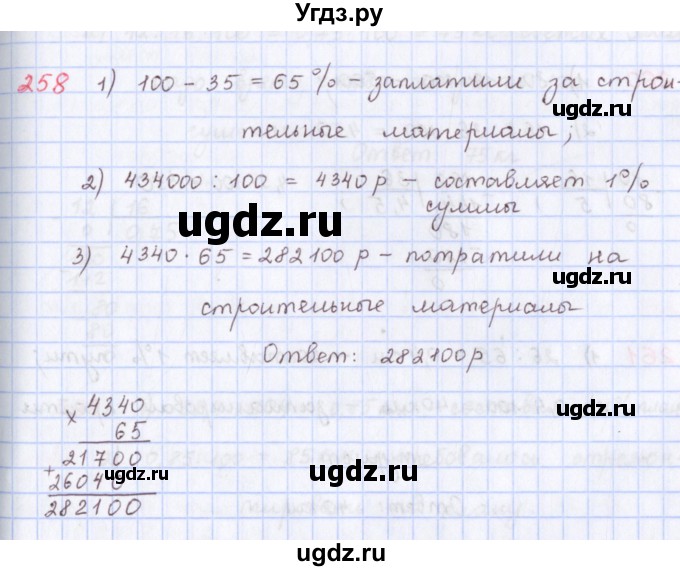 Угдз.ру
258 1) 100 - 35 = 65 % - заплатили за строи-
ugdz.ru
тельные материалы;
ugdz.ru
2) 434000 : 100 = 4340 р - составляет 1%
суммы
ugdz.ru
3) 4340 · 65 = 282100 р - потратили на
ugdz.ru
строительные материалы
Ответ: 282100 р
× 4340
65
+ 21700
26040
282100
ugdz.ru
ugdz.ru
ugdz.ru
ugdz.ru